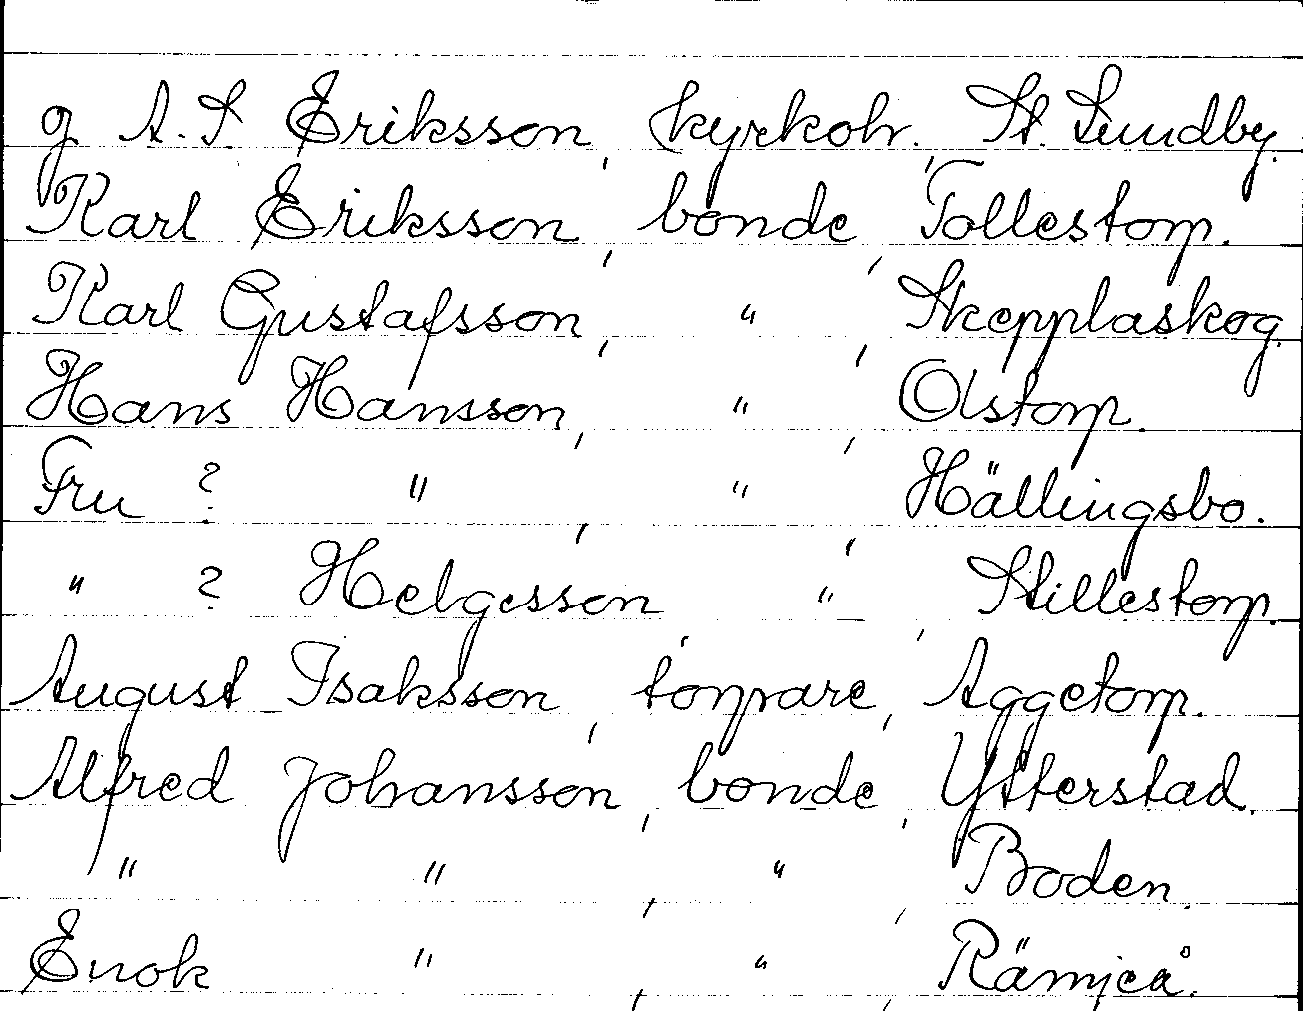 g A. S Eriksson, kyrkoh., St. Sundby.
Karl Eriksson, bonde, Tollestorp.
Karl Gustafsson, " , Skepplaskog.
Hans Hansson, " , Olstorp.
Fru ? " , " , Hällingsbo.
" ? Helgesson, " , Stillestorp.
August Isaksson, torpare, Aggetorp.
Alfred Johansson, bonde, Ytterstad.
" " , " , Boden.
Enok " , " , Rämjeå.